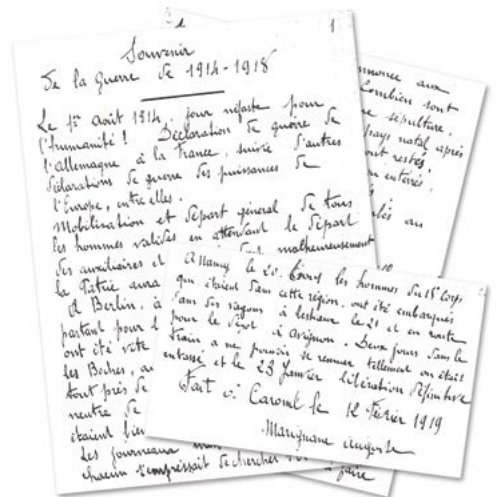 1
Souvenir
de la guerre de 1914-1918
Le 1er août 1914, jour néfaste pour
l'humanité! Déclaration de guerre de
l'Allemagne à la France, suivie d'autres
déclarations de guerre des puissances de
l'Europe, entre elles.
Mobilisation et départ général de tous
les hommes valides en attendant le départ
des auxiliaires et malheureusement
la Patrie aura
A Berlin, à
partant pour l
ont été vite
les Boches, au
tout près de
neutre de
étaient bien
Les journeaux
chacun s'empressait de chercher faire
aux
Combien sont
sépulture,
pays natal après
ont restés,
enterrés,
au
A Nancy le 20. tous les hommes du 15e corps
qui étaient dans cette région, ont été embarqués
dans des wagons à le 21 et en route
pour le dépôt à Avignon. Deux jours dans le
train a ne pouvoir se remuer tellement on était
entassé et le 23 Janvier libération définitive
Fait à Caromb le 12 Février 1919
Marignane Auguste